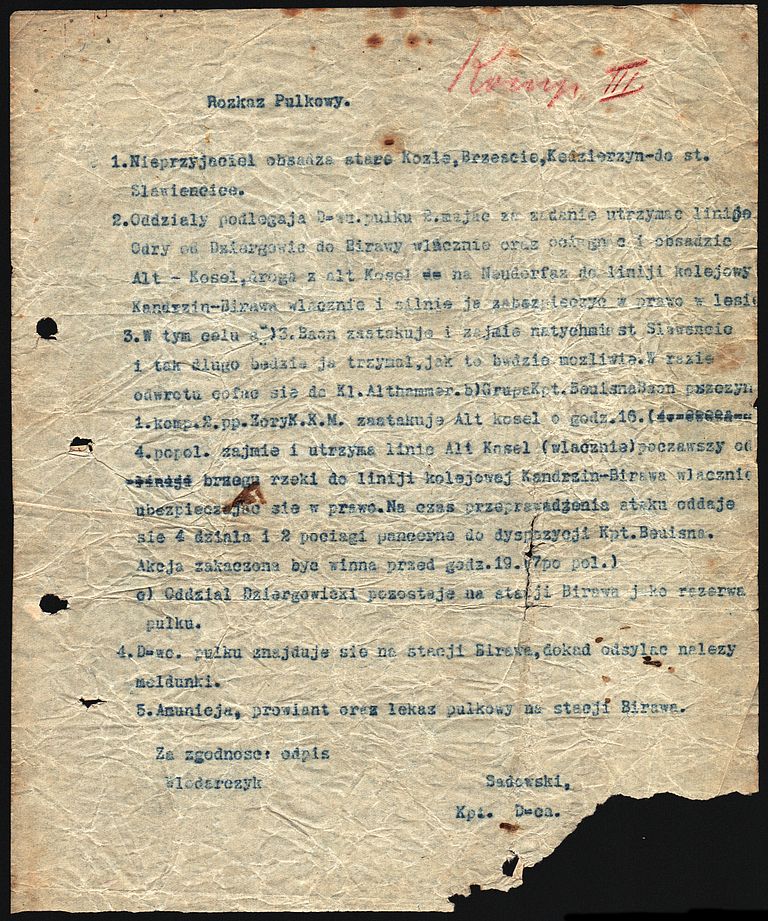 Komp. III
Rozkaz Pulkowy.
1.Nieprzyjaciel obsadza stare Kozle,Brzescie,Kedzierzyn-do st.
Slawiencice.
2.Oddzialy podlegaja D=wu.pulku 2.majac za zadanie utrzymac linije
Odry od Dziergowic do Birawy wlacznie oraz osiagnac i obsadzic
Alt - Kosel,droga z alt Kosel na Neudorfaz do liniji kolejowy
Kandrzin-Birawa wlacznie i silnie ja zabezpieczyc w prawo w lesie
3.W tym celu a")3.Baon zaatakuje i zajmie natychmiast Slawencic
i tak dlugo bedzie ja trzymal,jak to bedzie mozliwie.W razie
odwrotu cofac sie do Kl.Althammer.b)GrupaKpt.BeuisnaBaon pszczyn
1.komp.2.pp.ZoryK.K.M. zaatakuje Alt kosel o godz.16.(
4.popol. zajmie i utrzyma linie Alt Kosel (wlacznie)poczawszy od
liniji brzegu rzeki do liniji kolejowej Kandrzin-Birawa wlacznie
ubezpieczajac sie w prawo.Na czas przeprawadzenia ataku oddaje
sie 4 dziala i 2 pociagi pancerne do dyspozycji Kpt.Beuisna.
Akcja zakaczona byc winna przed godz.19.(7po pol.)
c) Oddzial Dziergowicki pozostaje na stacji Birawa jako rezerwa
pulku.
4.D=wo. pulku znajduje sie na stacji Birawa,dokad odsylac nalezy
meldunki.
5.Amunicja, prowiant oraz lekaz pulkowy na stacji Birawa.
Za zgodnosc: odpis
Wlodarczyk
Sadowski,
Kpt. D=ca.